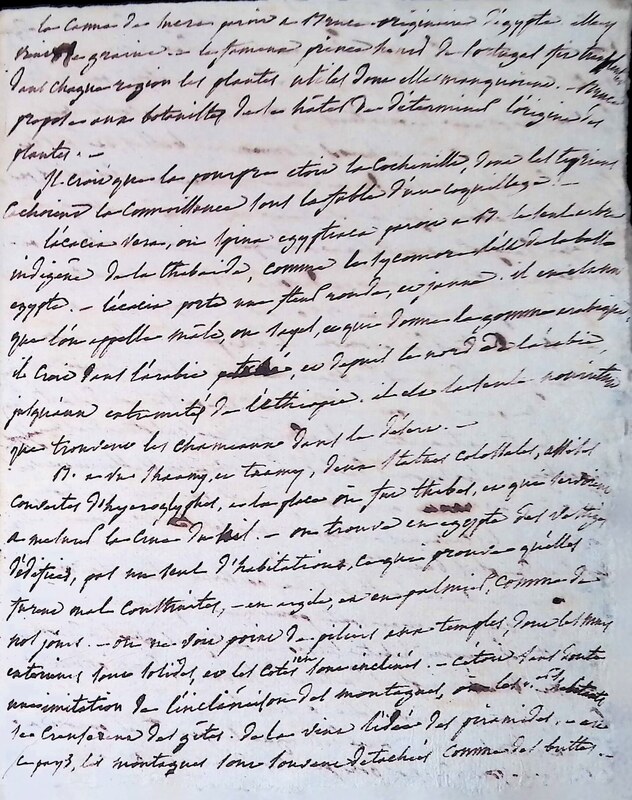 la canne de sucre paroit a Bruce originaire d'égypte elle y
vient de graine. – le fameux prince henri de Portugal fit
dans chaque region les plantes utiles dont elles manquoient. – Bruce
propose aux botanistes de se hâter de déterminer l'origine des
plantes. –
Il croit que la pourpre etoit la Cochenille, dont les tyriens
cachoient la Connoissance sous la fable d'un coquillage. –
l'acacia vera, ou spina egyptiaca paroit a B. le seul arbre
indigène de la thebaïde, comme le sycomore de la basse
egypte. – l'acacia porte une fleur ronde, et jaune. il en est un
que l'on appelle mâle, ou sayel, et qui donne la gomme arabique,
il croit dans l'arabie petrée, et depuis le nord de l'arabie
jusqu'aux extremités de l'ethiopie. il est la seule nourriture
que trouvent les chameaux dans le désert. –
B. a vu Shaamy, et taamy, deux statues colossales, assises
couvertes d'hyeroglyphes, a la place où fut thebes, et qui servirent
a mesurer la crue du nil. – on trouve en egypte des vestiges
d'édifices, pas un seul d'habitations, ce qui prouve qu'elles
furent mal construites, – en argile, et en palmier, comme de
nos jours. – on ne voit point de piliers aux temples, dont les murs
exterieurs sont solides, et les cotés sont inclinés. – C'etoit sans doute
une imitation de l'inclinaison des montagnes, où les habitants
se creuserent des gîtes. de la vint l'idée des piramides, – en
ce pays, les montagnes sont souvent detachées comme des buttes. –